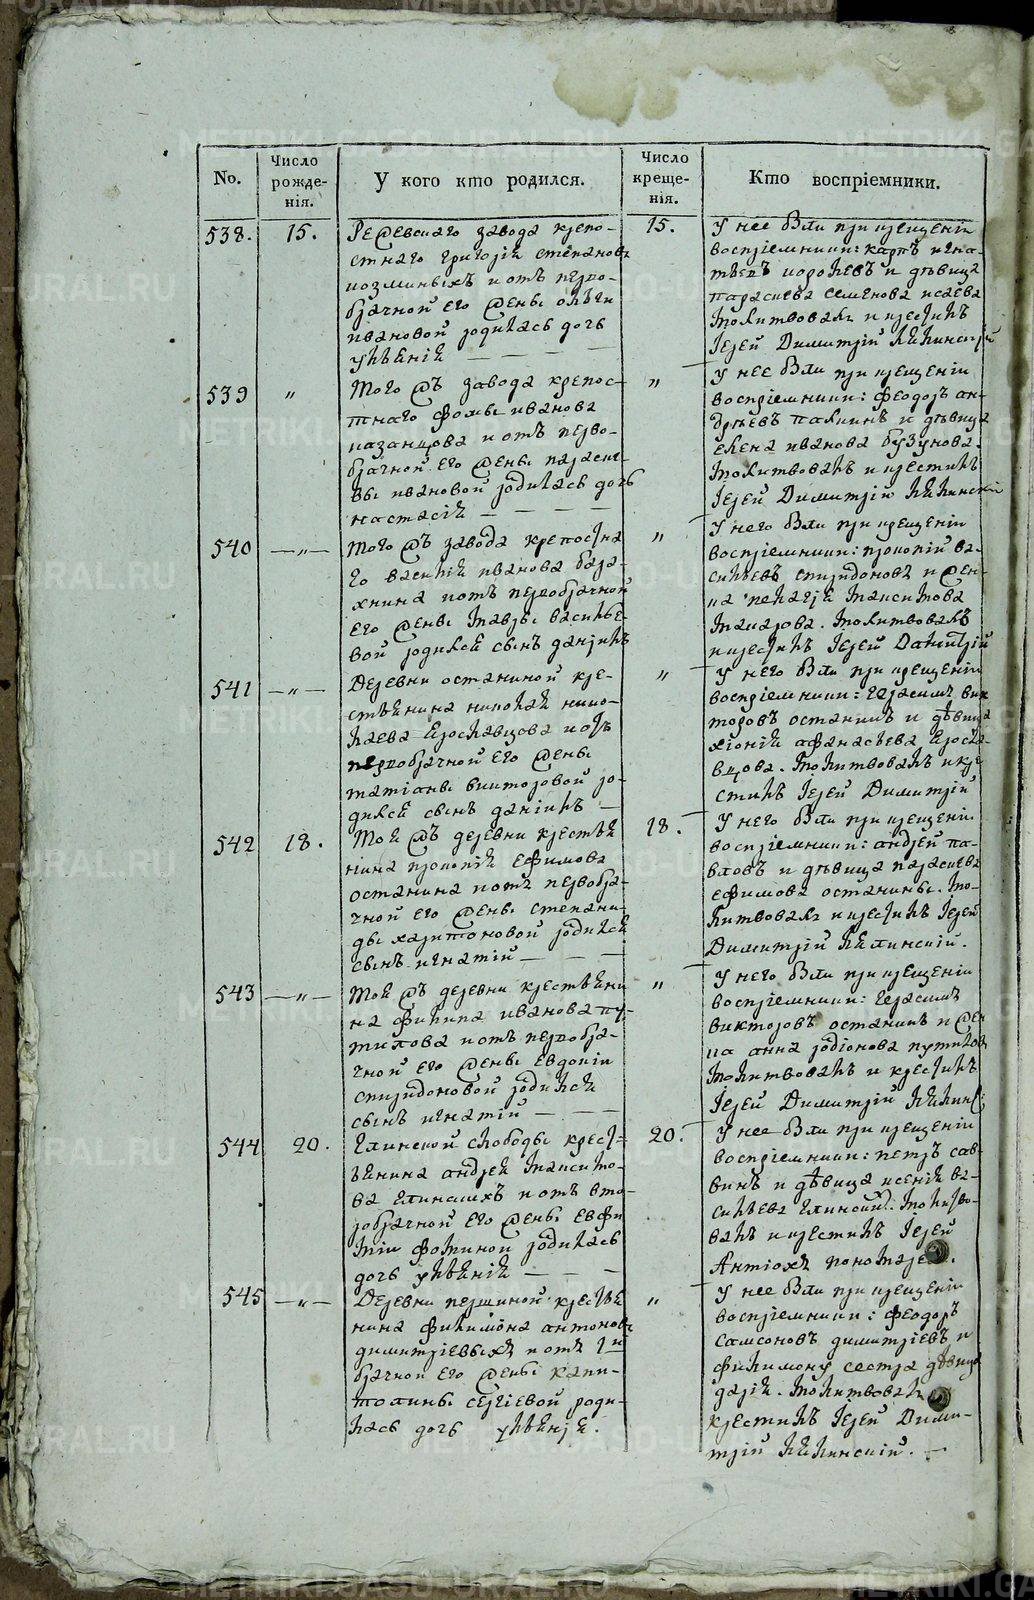 No.
Число
рожде-
нія.
У кого кто родился.
Число
креще-
нія.
Кто воспріемники.
538.
15.
Режевскаго завода крепо-
стнаго григорія степанова
козминыхъ и отъ перво-
брачной его жены ольги
ивановой родилась дочь
15.
У нее были при крещеніи
воспріемники: карпъ игна-
тьевъ королевъ и дѣвица
параскева семенова исаева
молитвовалъ и крестилъ
Іерей Димитрій
539
"
Того жъ завода крепос-
тнаго фомы иванова
казанцова и отъ перво-
брачной его жены параске-
вы ивановой родилась дочь
настасія
"
У нее были при крещеніи
воспріемники: феодоръ ан-
дреевъ палкинъ и дѣвица
елена иванова бузунова.
молитвовалъ и крестилъ
Іерей Димитрій
540
"
Того жъ завода крепостна
го василія иванова бара-
хнина и отъ первобрачной
его жены мавры василье-
вой родился сынъ даніилъ
"
У него были при крещеніи
воспріемники: прокопій ва-
сильевъ спиридоновъ и жен-
ка пелагія максимова
макарова. молитвовалъ
и крестилъ Іерей Димитрій
541
"
Деревни останиной кре-
стьянина николая нико-
лаева ярославцова и отъ
первобрачной его жены
татіаны викторовой ро-
дился сынъ даніилъ
"
У него были при крещеніи
воспріемники: герасимъ вик
торовъ останинъ и дѣвица
хіонія афанасьева яросла-
вцова. молитвовалъ и кре
стилъ Іерей Димитрій
542
18.
Той жъ деревни крестья
нина прокопія ефимова
останина и отъ первобра-
чной его жены степани-
ды харитоновой родился
сынъ игнатій
18.
У него были при крещеніи
воспріемники: андрей па-
вловъ и дѣвица параскева
ефимова останины. мо-
литвовалъ и крестилъ Іерей
Димитрій
543
"
Той жъ деревни крестьяни
на филипа иванова пу-
тилова и отъ первобра-
чной его жены евдокіи
спиридоновой родился
сынъ игнатій
"
У него были при крещеніи
воспріемники: герасимъ
викторовъ останинъ и жен
ка анна родіонова путилова
молитвовалъ и крестилъ
Іерей Димитрій
544
20.
Глинской слободы крест-
ьянина андрея максимо-
ва глинскихъ и отъ вто-
робрачной его жены евфи
міи фоминой родилась
дочь
20.
У нее были при крещеніи
воспріемники: петръ сав-
винъ и дѣвица ксенія ва-
сильева глинскихъ. молитво-
валъ и крестилъ Іерей
Антіохъ пономаревъ.
545
"
Деревни першиной крестья
нина филимона антонова
димитріевыхъ и отъ 1й
брачной его жены капи-
толины сергіевой роди-
лась дочь
"
У нее были при крещеніи
воспріемники: феодоръ
самсоновъ димитріевъ и
филимону сестра дѣвица
дарія. молитвовалъ
крестилъ Іерей Дими-
трій
METRIKI.GASO-URAL.RU